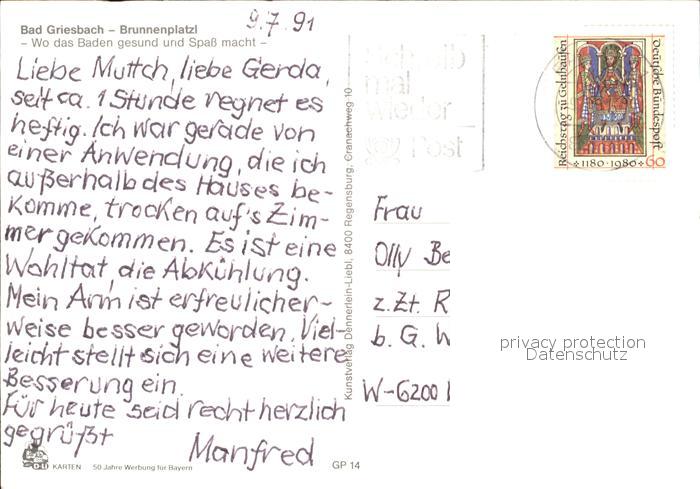 9.7.91
Bad Griesbach – Brunnenplatzl
– Wo das Baden gesund und Spaß macht –
Liebe Muttch, liebe Gerda,
seit ca. 1 Stunde regnet es
heftig. Ich war gerade von
einer Anwendung, die ich
außerhalb des Hauses be-
komme, trocken auf's Zim-
mer gekommen. Es ist eine
Wohltat, die Abkühlung.
Mein Arm ist erfreulicher-
weise besser geworden. Viel-
leicht stellt sich eine weitere
Besserung ein.
Für heute seid recht herzlich
gegrüßt
Manfred
KARTEN 50 Jahre Werbung für Bayern
GP 14
Kunstverlag Dennerlein-Liebl, 8400 Regensburg, Cranachweg 10
mal
wieder
Post
Reichstag zu Gelnhausen
Deutsche Bundespost
1180·1980
60
Frau
Olly Be
z.Zt. R
b. G. W
W-6200
privacy protection
Datenschutz